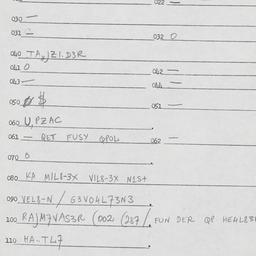 022 —
030 —
031 — 032 0
040 TA,JZI.D3R
041 0 042 —
043 — 044 —
050 $ 051 —
060 U,PZAC
061 — QET FUSY QPOL 062 —
070 0
080 KA MIL8-3X VIL8-3X N1S+
090 VEL8-N / G3V04L73N3
100 RAJM7VAS3R (002 (287/. FUN DER QP HE4L83
110 HA-TL7